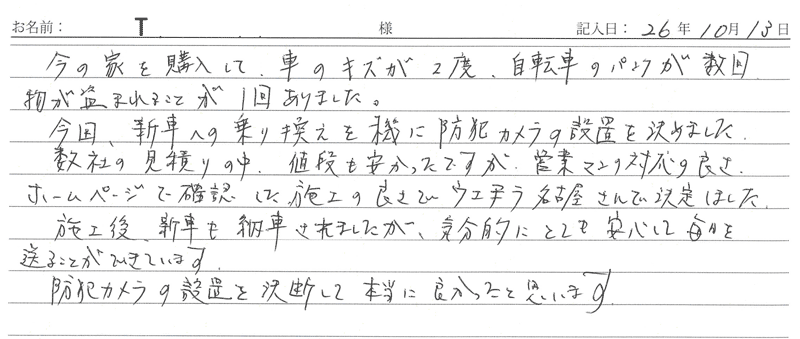 お名前： T 様 記入日： 26年10月13日
今の家を購入して、車のキズが2度、自転車のパンクが数回、
物が盗まれることが1回ありました。
今回、新車への乗り換えを機に防犯カメラの設置を決めました。
数社の見積りの中、値段も安かったですが、営業マンの対応の良さ、
ホームページで確認した施工の良さでウエチラ名古屋さんで決定しました。
施工後、新車も納車されましたが、気分的にとても安心して毎日を
送ることができています。
防犯カメラの設置を決断して本当に良かったと思います。